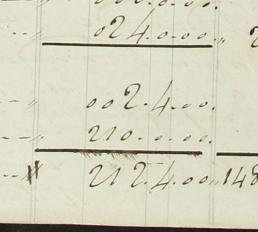 024.0.00.
002.4.00.
210.0.00.
212.4.00 148